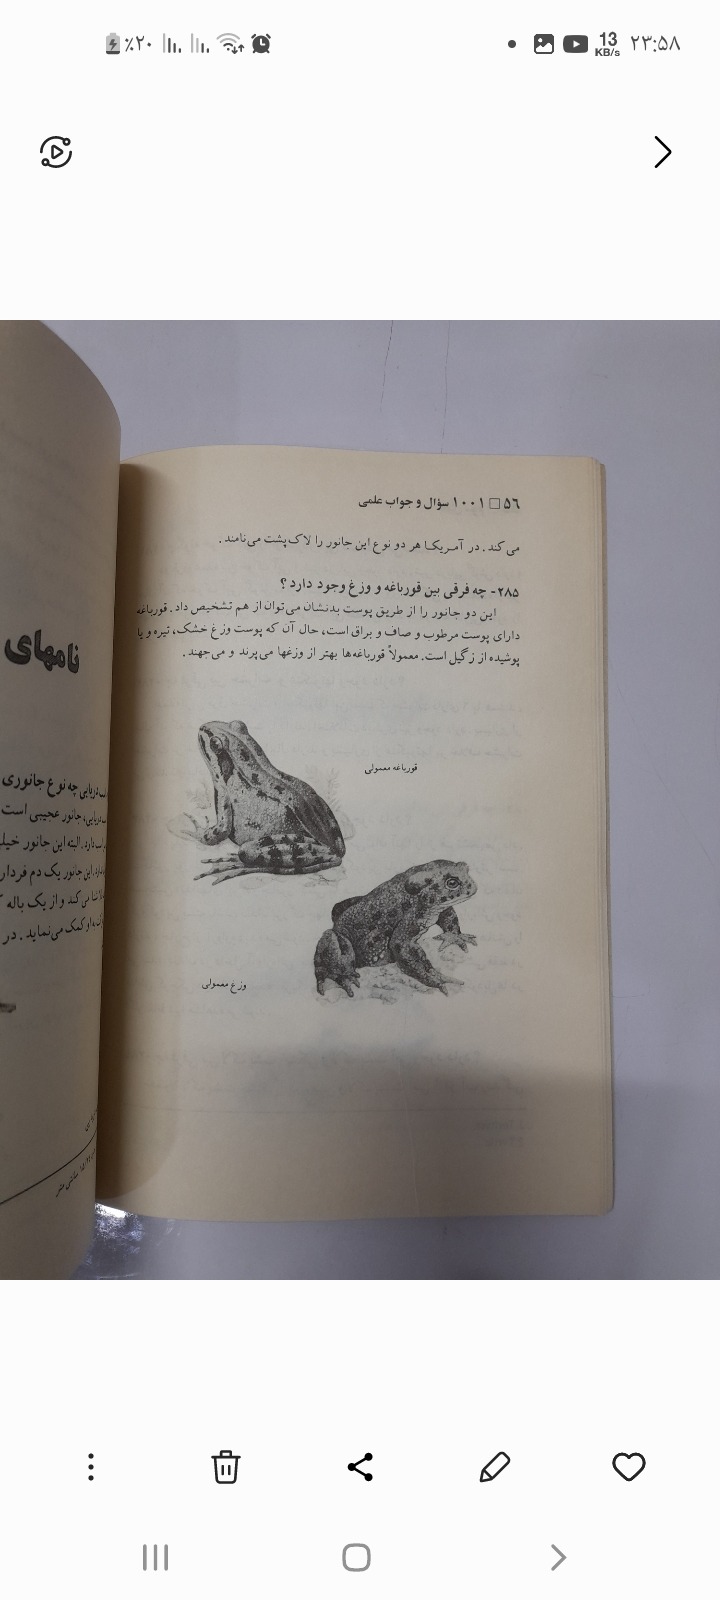 ٪۲۰
13
KB/s
۲۳:۵۸
۵۶ □ ۱۰۰۱ سؤال و جواب علمی
می‌کند. در آمریکا هر دو نوع این جانور را لاک‌پشت می‌نامند.
۲۸۵- چه فرقی بین قورباغه و وزغ وجود دارد؟
این دو جانور را از طریق پوست بدنشان می‌توان از هم تشخیص داد. قورباغه
دارای پوست مرطوب و صاف و براق است، حال آن که پوست وزغ خشک، تیره و یا
پوشیده از زگیل است. معمولاً قورباغه‌ها بهتر از وزغها می‌پرند و می‌جهند.
قورباغه معمولی
وزغ معمولی
چه نوع جانوری
جانور عجیبی است
دارد. البته این جانور خیلی
این جانور یک دم فردار
می‌کند و از یک باله
کمک می‌نماید. در